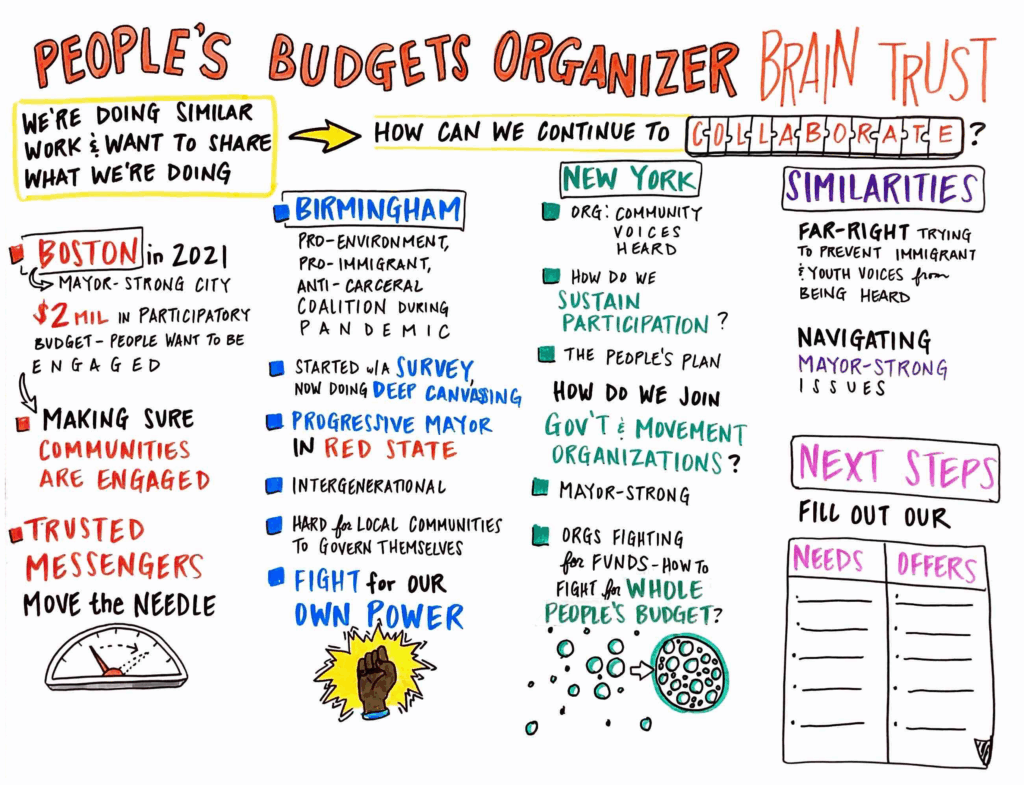 PEOPLE'S BUDGETS ORGANIZER BRAIN TRUST
WE'RE DOING SIMILAR
WORK & WANT TO SHARE
WHAT WE'RE DOING
HOW CAN WE CONTINUE TO COLLABORATE?
BOSTON in 2021
MAYOR-STRONG CITY
$2 MIL IN PARTICIPATORY
BUDGET - PEOPLE WANT TO BE
ENGAGED
MAKING SURE
COMMUNITIES
ARE ENGAGED
TRUSTED
MESSENGERS
MOVE the NEEDLE
BIRMINGHAM
PRO-ENVIRONMENT,
PRO-IMMIGRANT,
ANTI-CARCERAL
COALITION DURING
PANDEMIC
STARTED w/A SURVEY,
NOW DOING DEEP CANVASING
PROGRESSIVE MAYOR
IN RED STATE
INTERGENERATIONAL
HARD for LOCAL COMMUNITIES
TO GOVERN THEMSELVES
FIGHT for OUR
OWN POWER
NEW YORK
ORG: COMMUNITY
VOICES
HEARD
HOW DO WE
SUSTAIN
PARTICIPATION?
THE PEOPLE'S PLAN
HOW DO WE JOIN
GOV'T & MOVEMENT
ORGANIZATIONS?
MAYOR-STRONG
ORGS FIGHTING
for FUNDS - HOW TO
FIGHT for WHOLE
PEOPLE'S BUDGET?
SIMILARITIES
FAR-RIGHT TRYING
TO PREVENT IMMIGRANT
& YOUTH VOICES from
BEING HEARD
NAVIGATING
MAYOR-STRONG
ISSUES
NEXT STEPS
FILL OUT OUR
NEEDS OFFERS